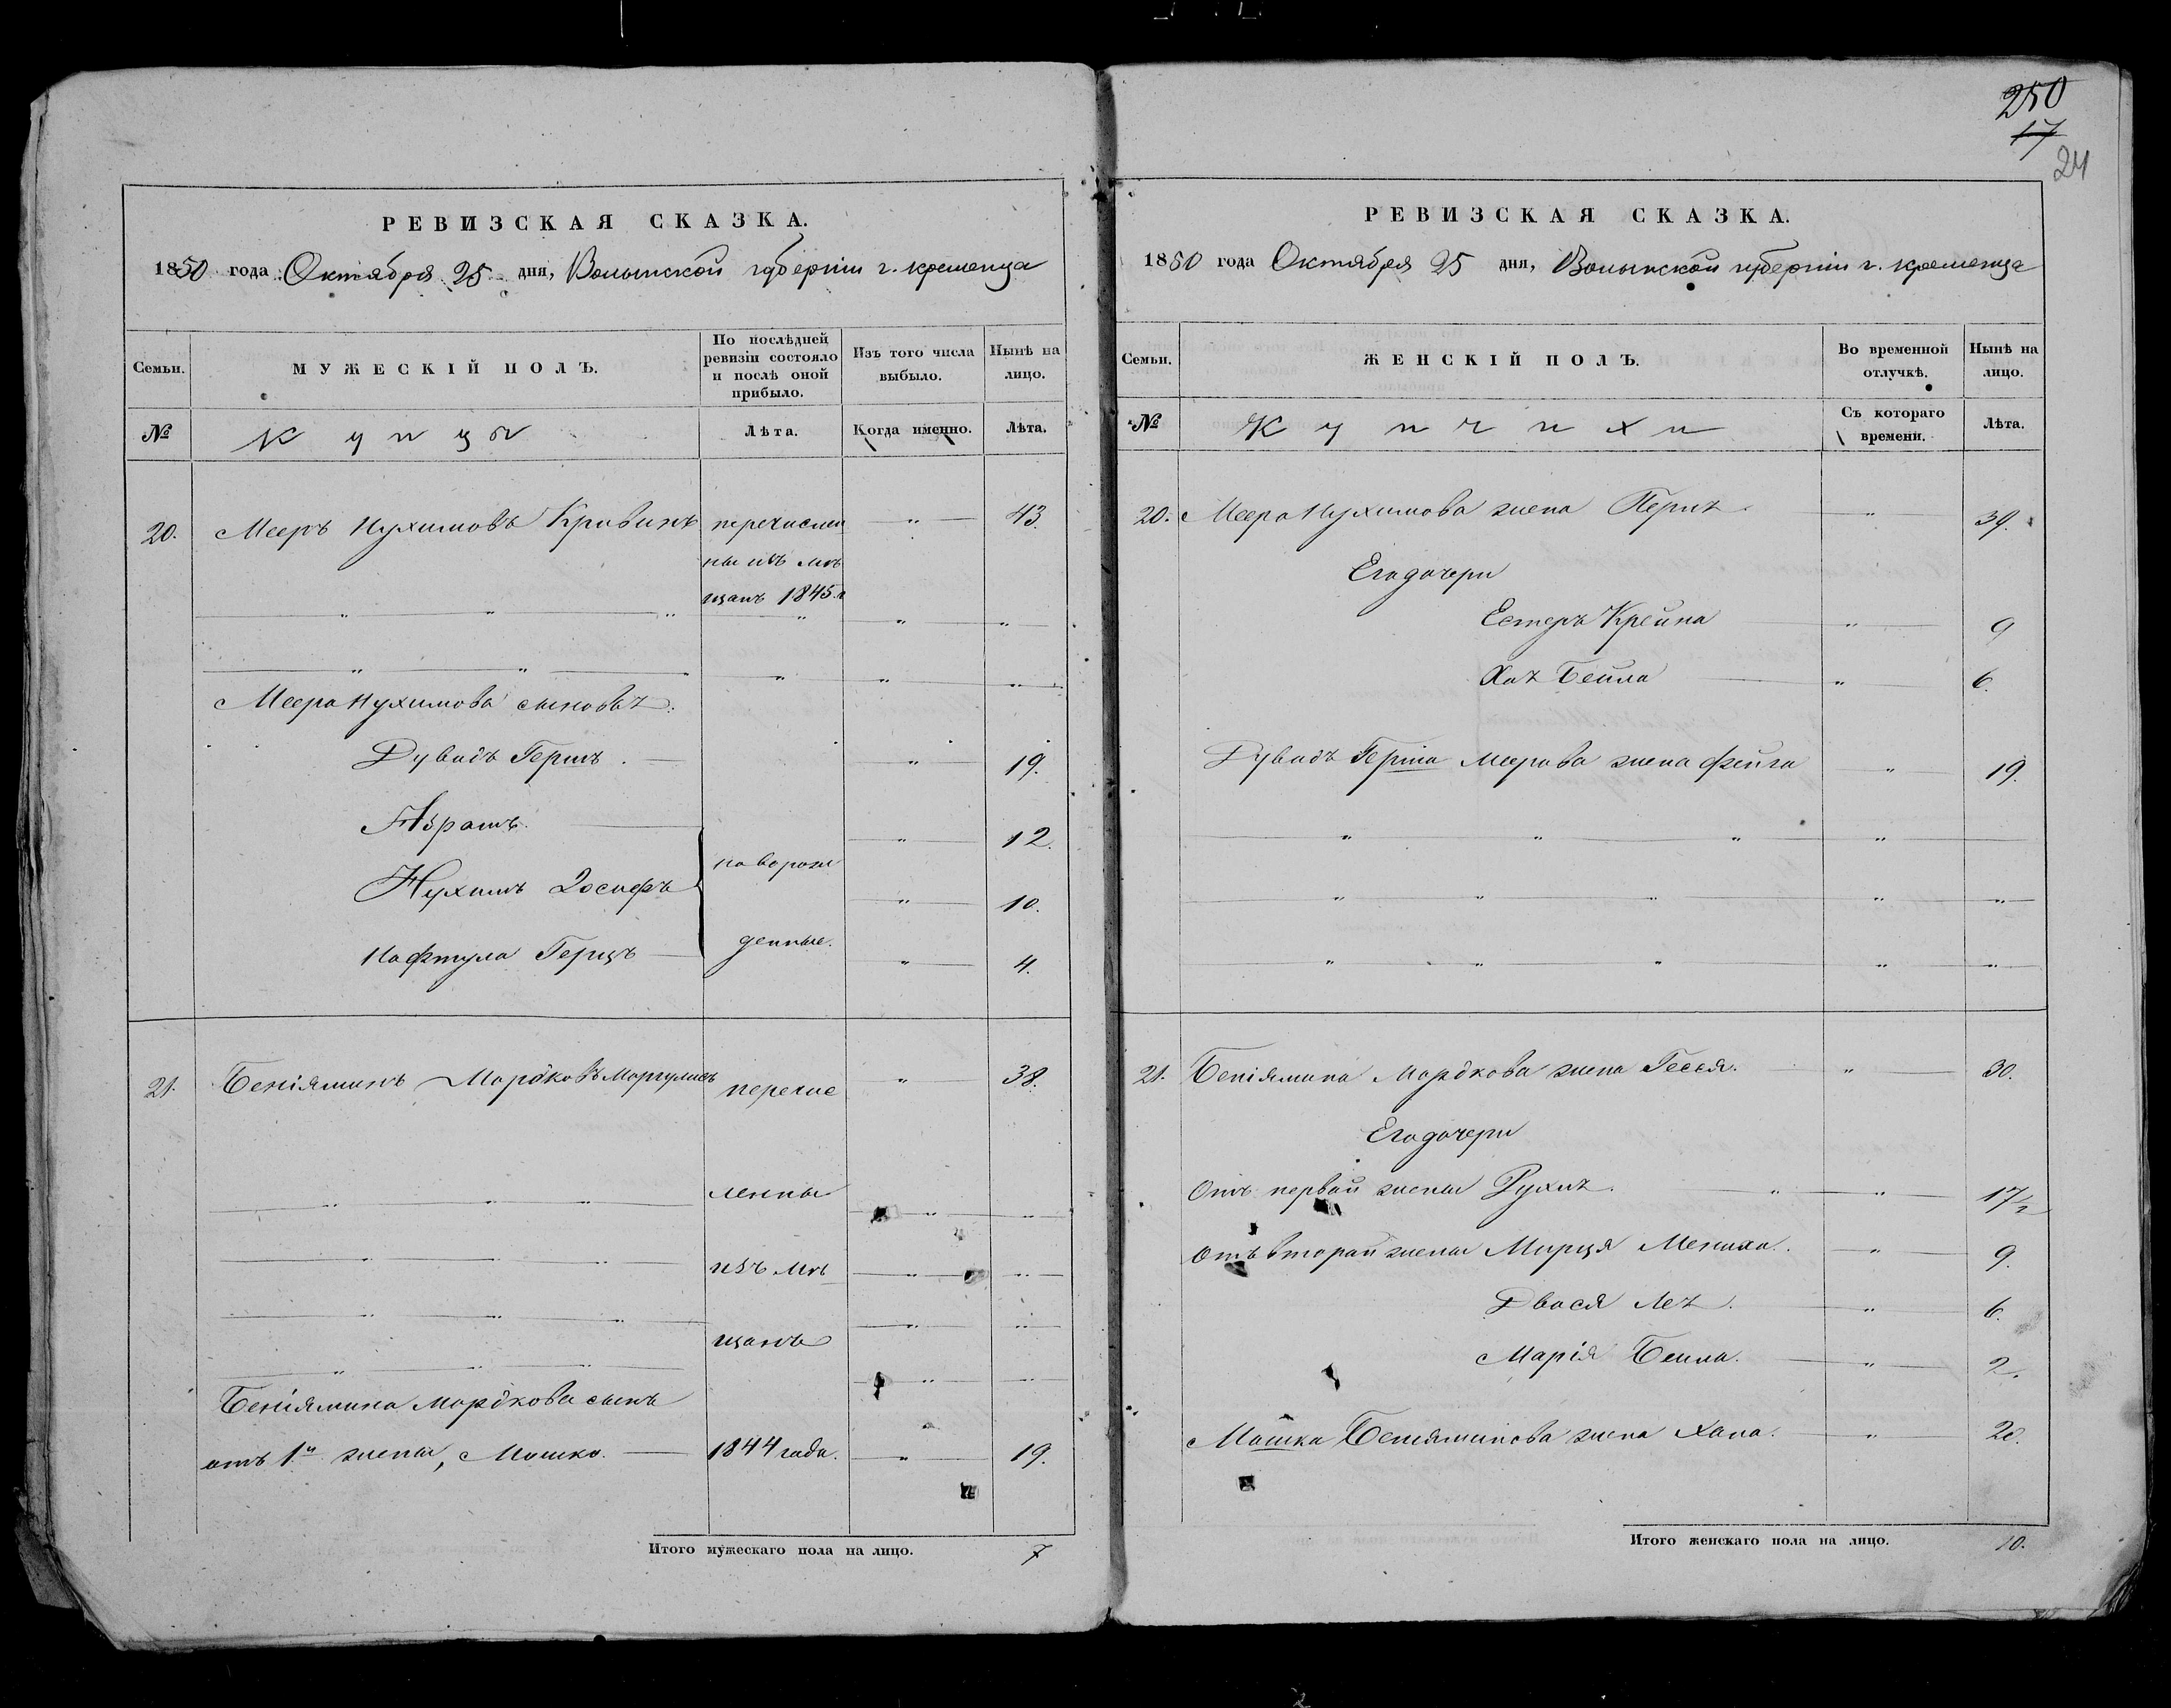 250
17
24
РЕВИЗСКАЯ СКАЗКА.
1850 года Октября 25 дня, Волынской губерніи г. Кременца
Семьи.
МУЖЕСКІЙ ПОЛЪ.
По послѣдней ревизіи состояло и послѣ оной прибыло.
Изъ того числа выбыло.
Нынѣ на лицо.
№
Купцы
Лѣта.
Когда именно.
Лѣта.
20. Мееръ Нухимовъ перечислен " 43.
ны изъ мѣ
щанъ 1845 г
" " " " " "
" " " " "
Меера Нухимова сыновья:
Дувидъ Гершъ. " 19.
Абрамъ. " 12.
новорож
Нухимъ Іосифъ " 10.
денные.
Нафтула Герцъ " 4.
21. Беніяминъ Мордковъ Моргулисъ перечис " 38.
" " " ленны " "
" " " изъ мѣ " "
" " " " "
щанъ
" " " " "
Беніямина Мордкова сынъ
отъ 1й жены, Мошко. 1844 года. " 19.
Итого мужескаго пола на лицо. 7
РЕВИЗСКАЯ СКАЗКА.
1850 года Октября 25 дня, Волынской губерніи г. Кременца
Семьи.
ЖЕНСКІЙ ПОЛЪ.
Во временной отлучкѣ.
Нынѣ на лицо.
№
Купчихи
Съ котораго времени.
Лѣта.
20. Меера Нухимова жена Перля " 39.
Его дочери
Естеръ Крейна " 9
Хая Бейла " 6.
Дувидъ Герша Меерова жена Фейга " 19.
" " " "
" " " " "
" " " " "
21. Беніямина Мордкова жена Гесся. " 30.
Его дочери
Отъ первой жены Рухля. " " 17½
Отъ второй жены Мирця Мениха. " 9.
Двося Лея. " 6.
Марія Бейла. " 2.
Мошка Беніяминова жена Хана. " 20.
Итого женскаго пола на лицо. 10.